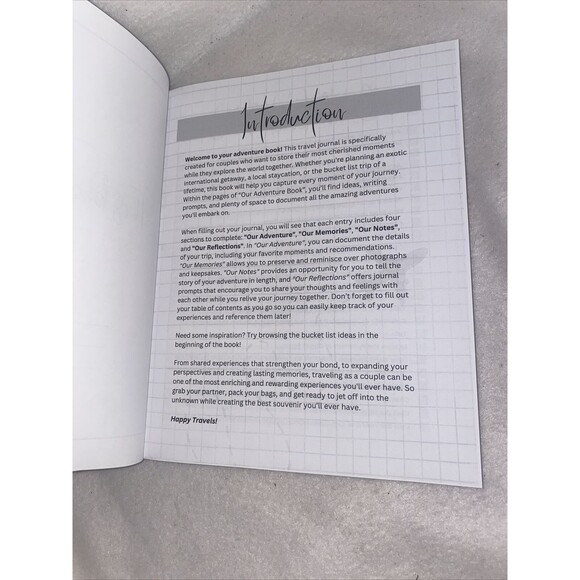 Introduction
Welcome to your adventure book! This travel journal is specifically
created for couples who want to store their most cherished moments
while they explore the world together. Whether you're planning an exotic
international getaway, a local staycation, or the bucket list trip of a
lifetime, this book will help you capture every moment of your journey.
Within the pages of "Our Adventure Book", you'll find ideas, writing
prompts, and plenty of space to document all the amazing adventures
you'll embark on.
When filling out your journal, you will see that each entry includes four
sections to complete: "Our Adventure", "Our Memories", "Our Notes",
and "Our Reflections". In "Our Adventure", you can document the details
of your trip, including your favorite moments and recommendations.
"Our Memories" allows you to preserve and reminisce over photographs
and keepsakes. "Our Notes" provides an opportunity for you to tell the
story of your adventure in length, and "Our Reflections" offers journal
prompts that encourage you to share your thoughts and feelings with
each other while you relive your journey together. Don't forget to fill out
your table of contents as you go so you can easily keep track of your
experiences and reference them later!
Need some inspiration? Try browsing the bucket list ideas in the
beginning of the book!
From shared experiences that strengthen your bond, to expanding your
perspectives and creating lasting memories, traveling as a couple can be
one of the most enriching and rewarding experiences you'll ever have. So
grab your partner, pack your bags, and get ready to jet off into the
unknown while creating the best souvenir you'll ever have.
Happy Travels!